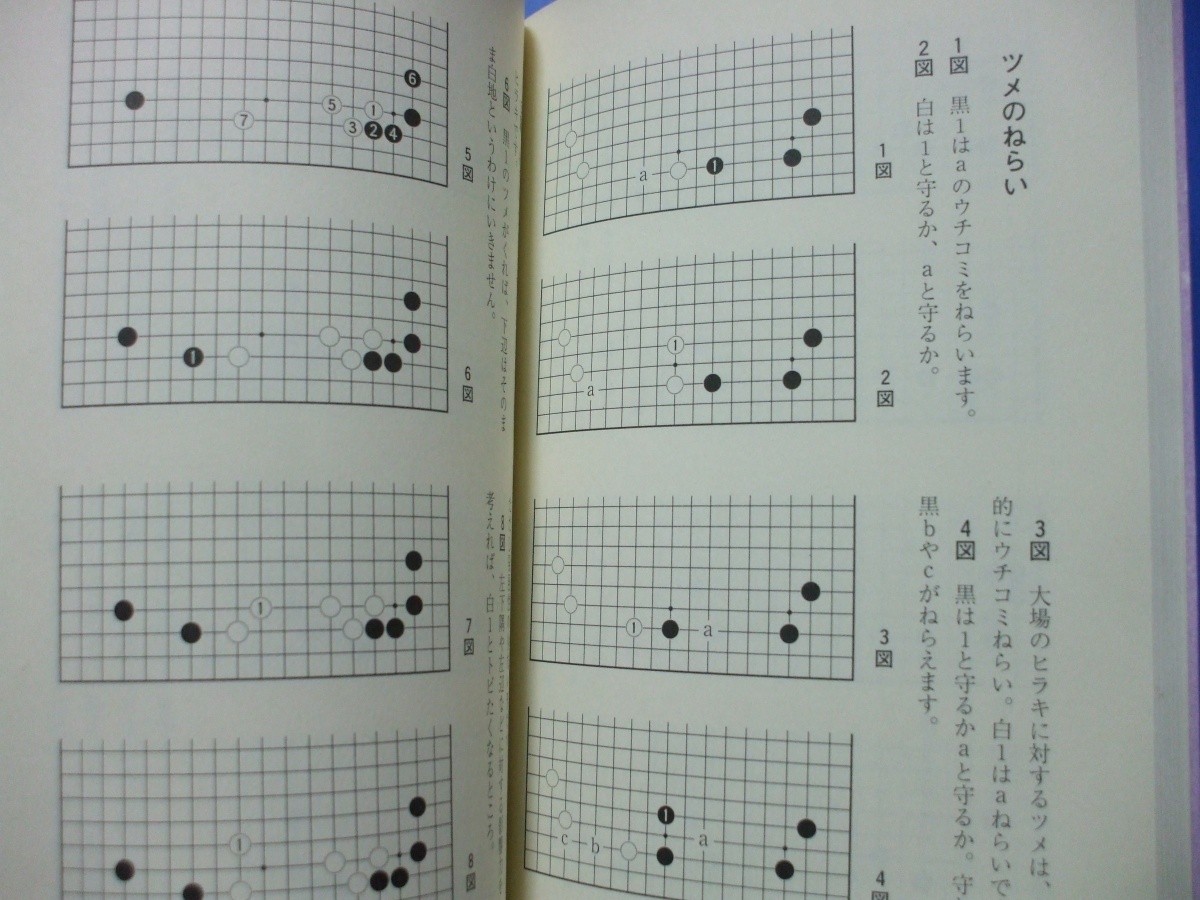 ツメのねらい
1図　黒1はaのウチコミをねらいます。
2図　白は1と守るか、aと守るか。
3図　大場のヒラキに対するツメは、
的にウチコミねらい。白1はaねらいで
4図　黒は1と守るかaと守るか。守
黒bやcがねらえます。
1図
1
a
2図
1
a
3図
1
a
4図
1
a
b
c
6図　黒1のツメがくれば、下辺はそのま
ま白地というわけにいきません。
8図　左下隅や左辺など
考えれば、白1とトビたくなるところ。
5図
1
2
3
4
5
6
7
6図
1
7図
1
8図
1